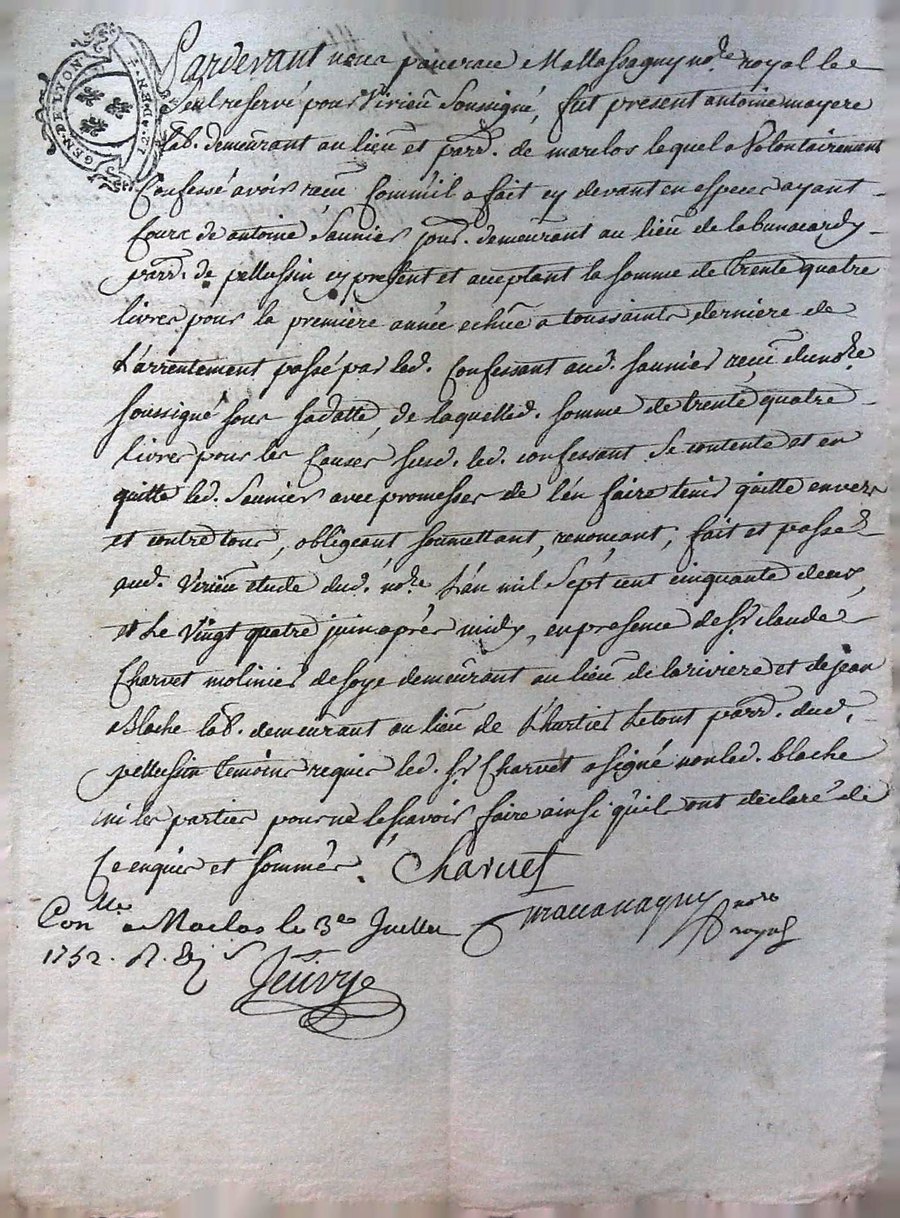 GEN. DE LYON
Pardevant nous pancrace Mattassagny no.re royal le
seul reservé pour Virieu Soussigné, fut present antoine mayere
lab. demeurant au lieu et parr. de maclos lequel a Volontairement
Confessé avoir reçu Comm'il a fait cy devant en especes ayant
Cours de antoine Saunier jour. demeurant au lieu de
parr. de pellussin cy present et acceptant la somme de trente quatre
livres pour la premiere année echüe a toussaints derniere de
L'arrentement passé par led. Confessant aud. Saunier reçu du no.re
soussigné sous sa datte, de laquelle d. somme de trente quatre
livres pour les Causes susd. led. confessant se contente et en
quitte led. Saunier avec promesses de l'en faire tenir quitte envers
et contre tous, obligeant soumettant, renoncant, fait et passé
aud. Virieu étude dud. no.re L'an mil sept cent cinquante deux,
et Le vingt quatre juin après midy, en presence de sr. claude
Charvet molinier de soye demeurant au lieu de la riviere et de jean
Bloche lab. demeurant au lieu de Le tout parr. dud.
pellussin temoins requis led. sr. Charvet a signé non led. bloche
ni les parties pour ne le sçavoir faire ainsi qu'il ont déclaré de
ce enquis et sommés. Charvet
no.re
royal
Con.lle a Maclas le 3.e Juillet
1752. R.